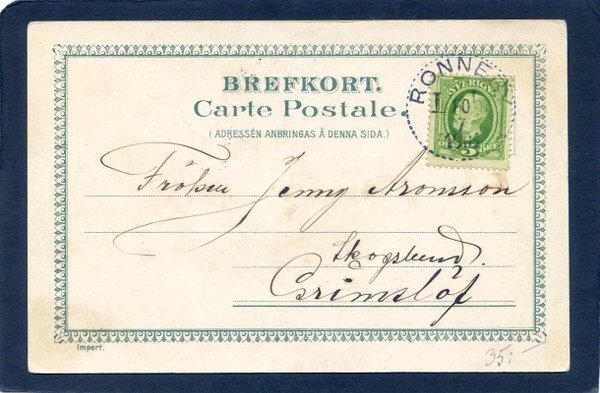 BREFKORT.
Carte Postale.
(ADRESSEN ANBRINGAS Å DENNA SIDA.)
RONNEBY
SVERIGE
Fröken Jenny Aronsson
Skogslund
Grimslöf
Import.
35:-